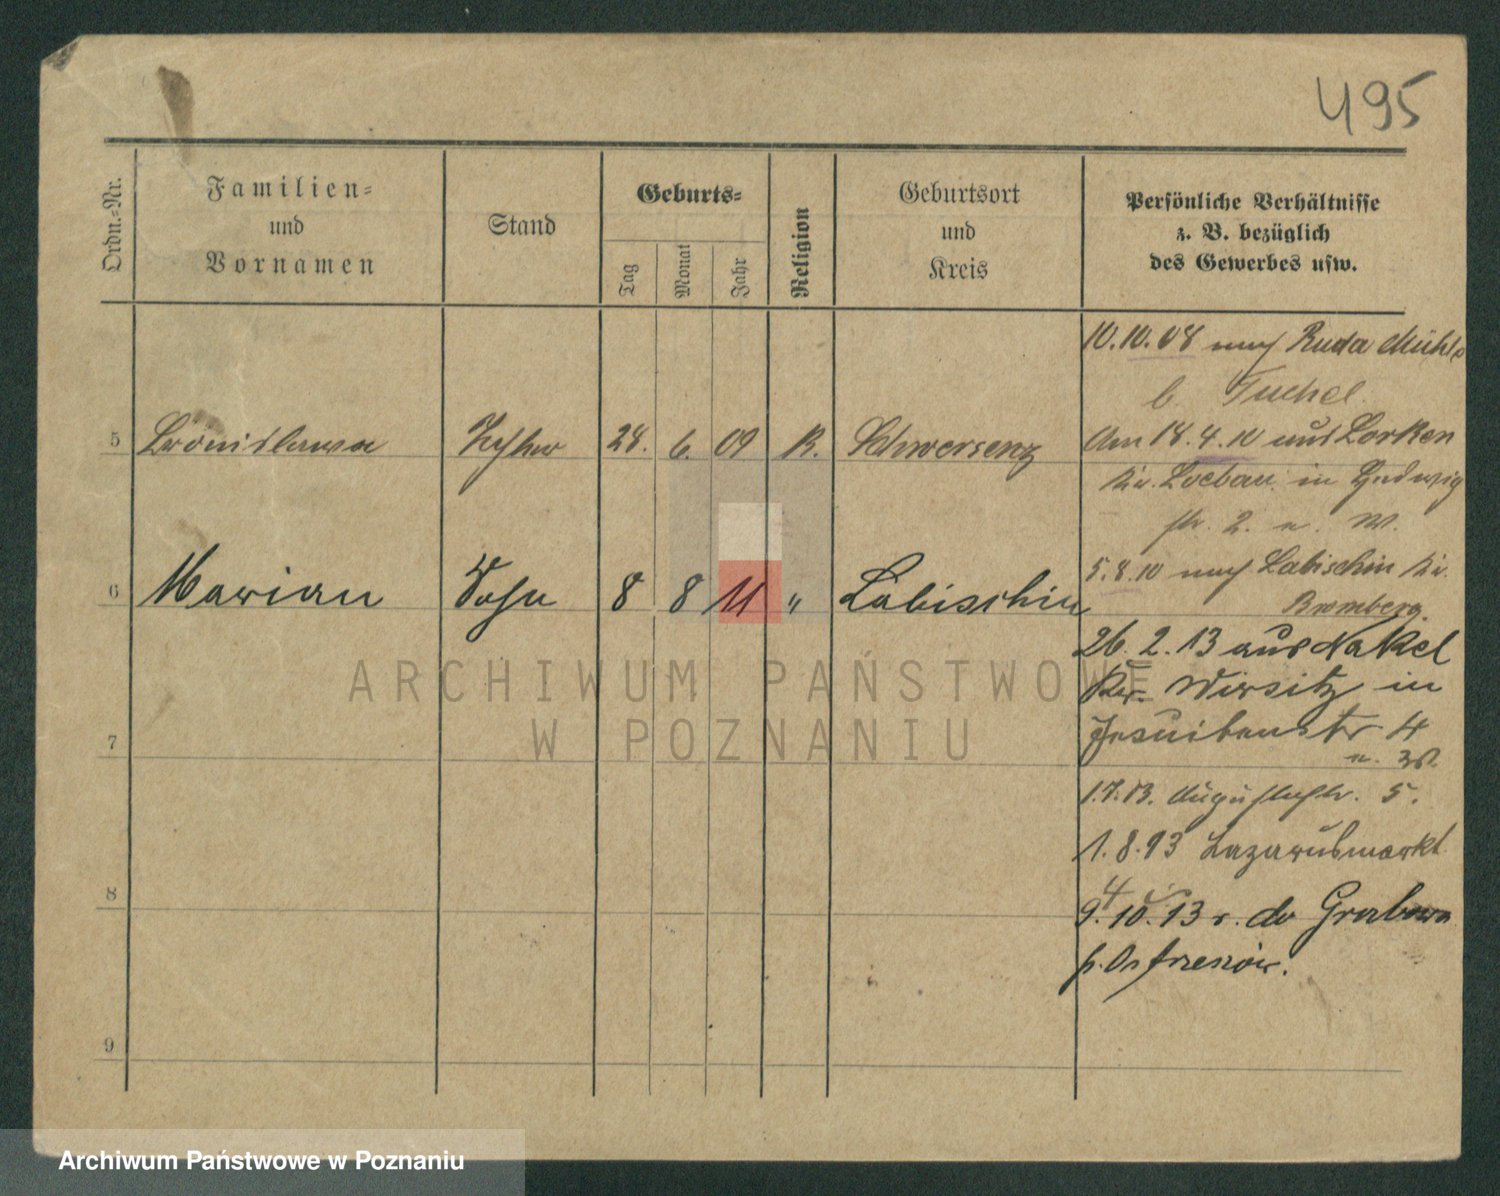 495
Ordn.-Nr.
Familien-
und
Vornamen
Stand
Geburts-
Tag
Monat
Jahr
Religion
Geburtsort
und
Kreis
Persönliche Verhältnisse
z. B. bezüglich
des Gewerbes usw.
10.10.08 nach Ruda Mühle
b. Tuchel.
5 Bronislawa Tochter 28. 6. 09 K. Schwersenz
Am 18.4.10 aus Lorken
Kr. Loebau in Hedwig
str. 2. u. W.
6 Marian Sohn 8 8 11 " Labischin
5.8.10 nach Labischin Kr.
Bromberg.
26.2.13 aus Nakel
Kr. Wirsitz in
Jesuitenstr 4
1.7.13. Augustastr. 5.
1.8.13 Lazarusmarkt
4
9.10.13 r. do Grabowa
p. Ostrzeszów.
7
8
9
ARCHIWUM PAŃSTWOWE
W POZNANIU
Archiwum Państwowe w Poznaniu